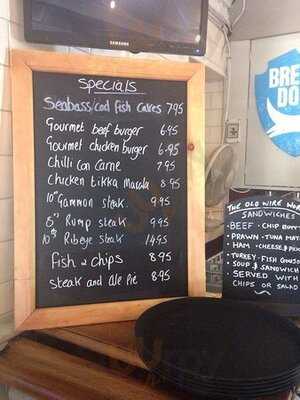 SAMSUNG
Specials
Seabass/cod fish cakes 7.95
Gourmet beef burger 6.95
Gourmet chicken burger 6.95
Chilli con carne 7.95
Chicken tikka masala 8.95
10oz Gammon steak. 9.95
Rump steak 9.95
10oz Ribeye steak 14.95
Fish & chips 8.95
steak and Ale Pie 8.95
BRE
DO
THE OLD WIRE WOR
SANDWICHES
• BEEF • CHIP BUTT
• PRAWN • TUNA MA
• HAM • CHEESE & PIC
• TURKEY • FISH GOUJO
• SOUP & SANDWICH
• SERVED WITH
CHIPS OR SALAD